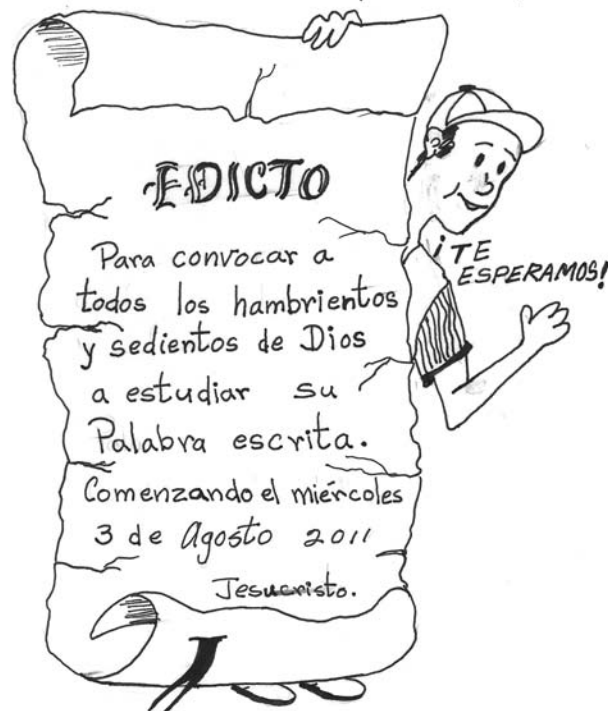 EDICTO
Para convocar a
todos los hambrientos
y sedientos de Dios
a estudiar su
Palabra escrita.
Comenzando el miércoles
3 de Agosto 2011
Jesucristo.
¡TE
ESPERAMOS!